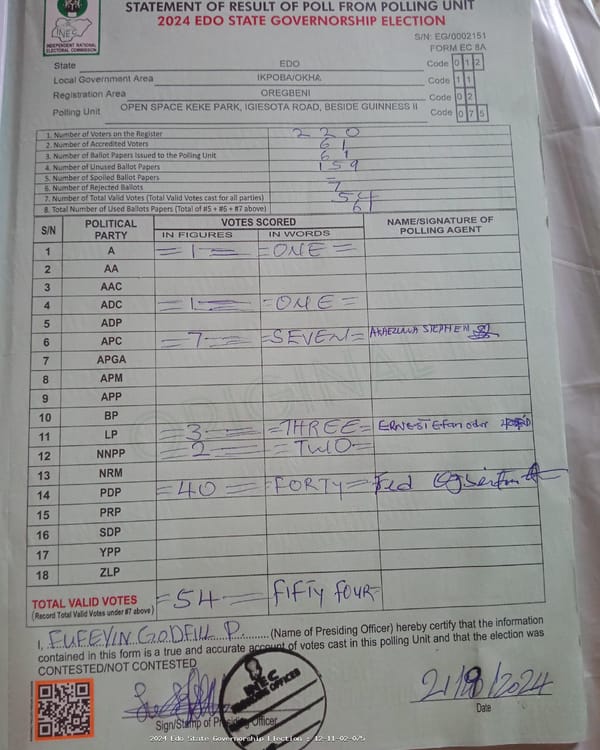 STATEMENT OF RESULT OF POLL FROM POLLING UNIT
2024 EDO STATE GOVERNORSHIP ELECTION
INEC
INDEPENDENT NATIONAL ELECTORAL COMMISSION
S/N: EG/0002151
FORM EC 8A
State EDO Code 0 1 2
Local Government Area IKPOBA/OKHA Code 1 1
Registration Area OREGBENI Code 0 2
Polling Unit OPEN SPACE KEKE PARK, IGIESOTA ROAD, BESIDE GUINNESS II Code 0 7 5
1. Number of Voters on the Register 220
2. Number of Accredited Voters 61
3. Number of Ballot Papers Issued to the Polling Unit 61
4. Number of Unused Ballot Papers 159
5. Number of Spoiled Ballot Papers =
6. Number of Rejected Ballots 7
7. Number of Total Valid Votes (Total Valid Votes cast for all parties) 54
8. Total Number of Used Ballots Papers (Total of #5 + #6 + #7 above) 61
S/N POLITICAL PARTY VOTES SCORED NAME/SIGNATURE OF POLLING AGENT
IN FIGURES IN WORDS
1 A =1= =ONE=
2 AA
3 AAC
4 ADC =1= =ONE=
5 ADP
6 APC =7= =SEVEN= STEPHEN
7 APGA
8 APM
9 APP
10 BP
11 LP =3= =THREE= ERNEST
12 NNPP =2= =TWO=
13 NRM
14 PDP =40= =FORTY=
15 PRP
16 SDP
17 YPP
18 ZLP
ORIGINAL
TOTAL VALID VOTES =54= FIFTY FOUR
(Record Total Valid Votes under #7 above)
I, P. (Name of Presiding Officer) hereby certify that the information
contained in this form is a true and accurate account of votes cast in this polling Unit and that the election was
CONTESTED/NOT CONTESTED
INEC
Sign/Stamp of Presiding Officer
21/9/2024
Date
2024 Edo State Governorship Election : 12-11-02-075